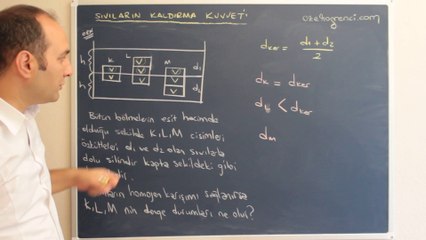 SIVILARIN KALDIRMA KUVVETİ
ozelogrenci.com
dker = d1 + d2
2
L
K
M
V V
V
V V
V
V V
d1
h
h
d2
dK = dker
dL < dker
dM
Bütün bölmelerin eşit hacimde
olduğu şekilde K, L, M cisimleri
özkütleleri d1 ve d2 olan sıvılarla
dolu silindir kapta şekildeki gibi
homojen karışımı sağlanırsa
K, L, M nin denge durumları ne olur?